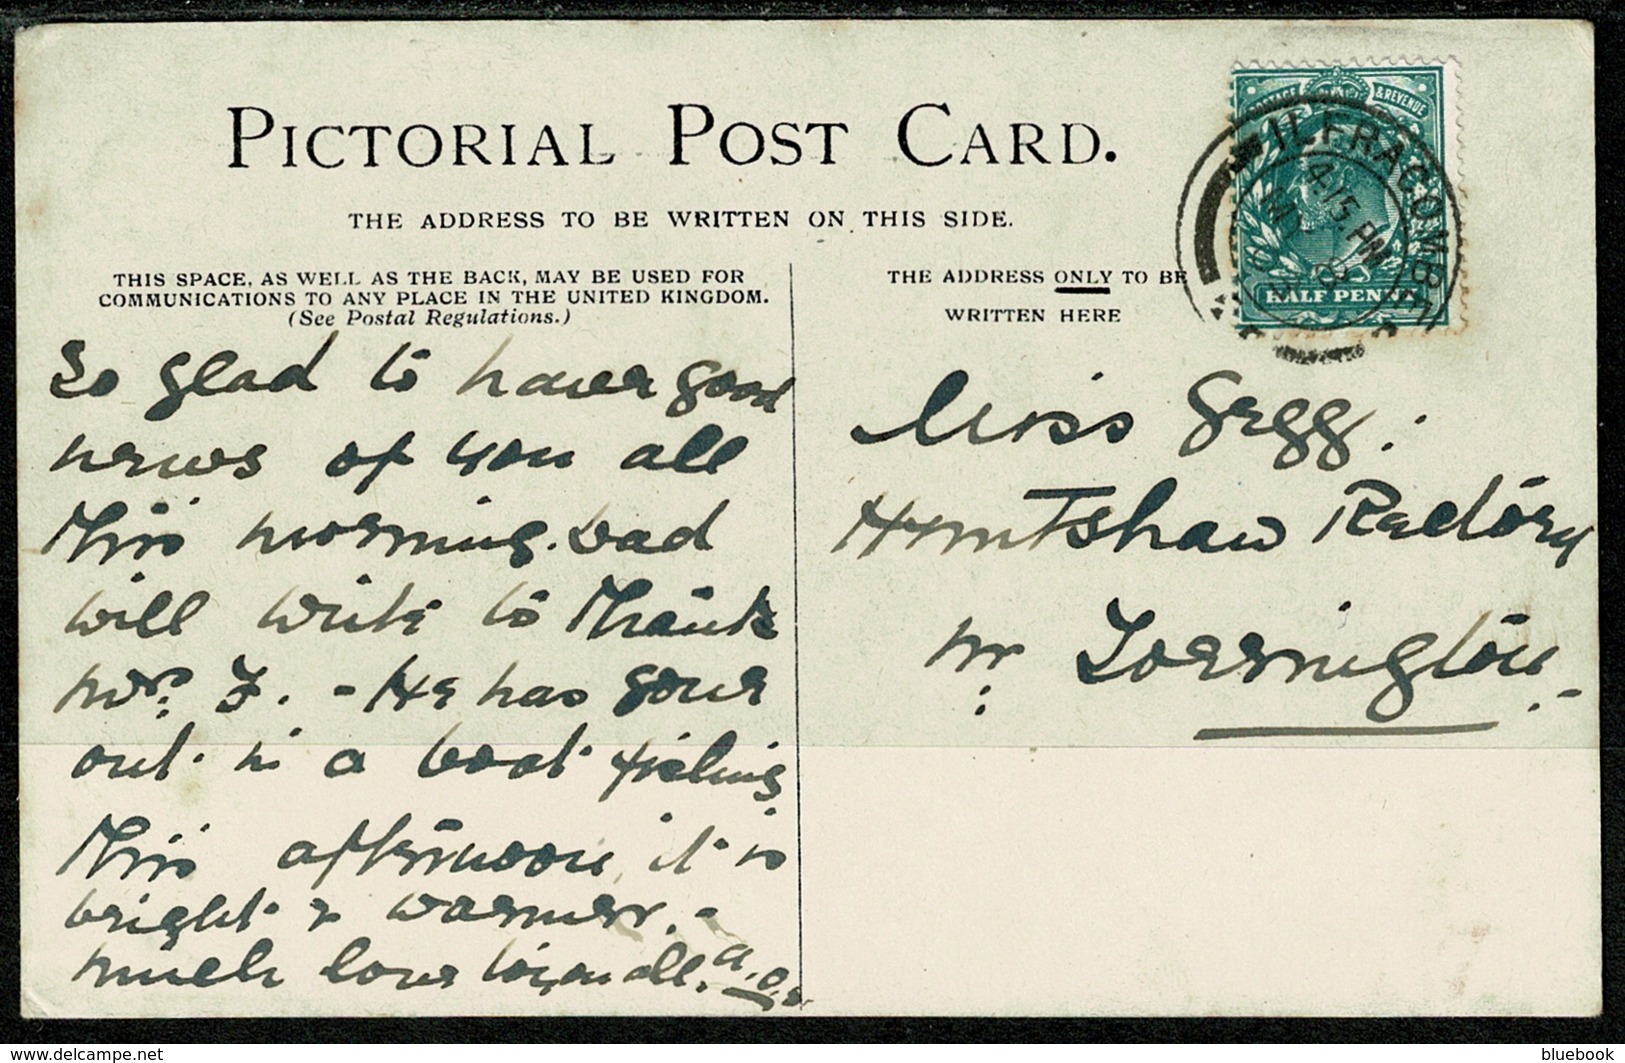 PICTORIAL POST CARD.
THE ADDRESS TO BE WRITTEN ON THIS SIDE.
THIS SPACE, AS WELL AS THE BACK, MAY BE USED FOR
COMMUNICATIONS TO ANY PLACE IN THE UNITED KINGDOM.
(See Postal Regulations.)
THE ADDRESS ONLY TO BE
WRITTEN HERE
POSTAGE & REVENUE
HALF PENNY
ILFRACOMBE
4.15 PM
So glad to have good
news of you all
this morning. Dad
will write to thank
Mr. F. - He has gone
out in a boat fishing
this afternoon, it is
bright & warmer. -
Much love to you all.
Miss Gegg.
Huntshaw Rectory
Nr. Torrington.
Delcampe.net
bluebook